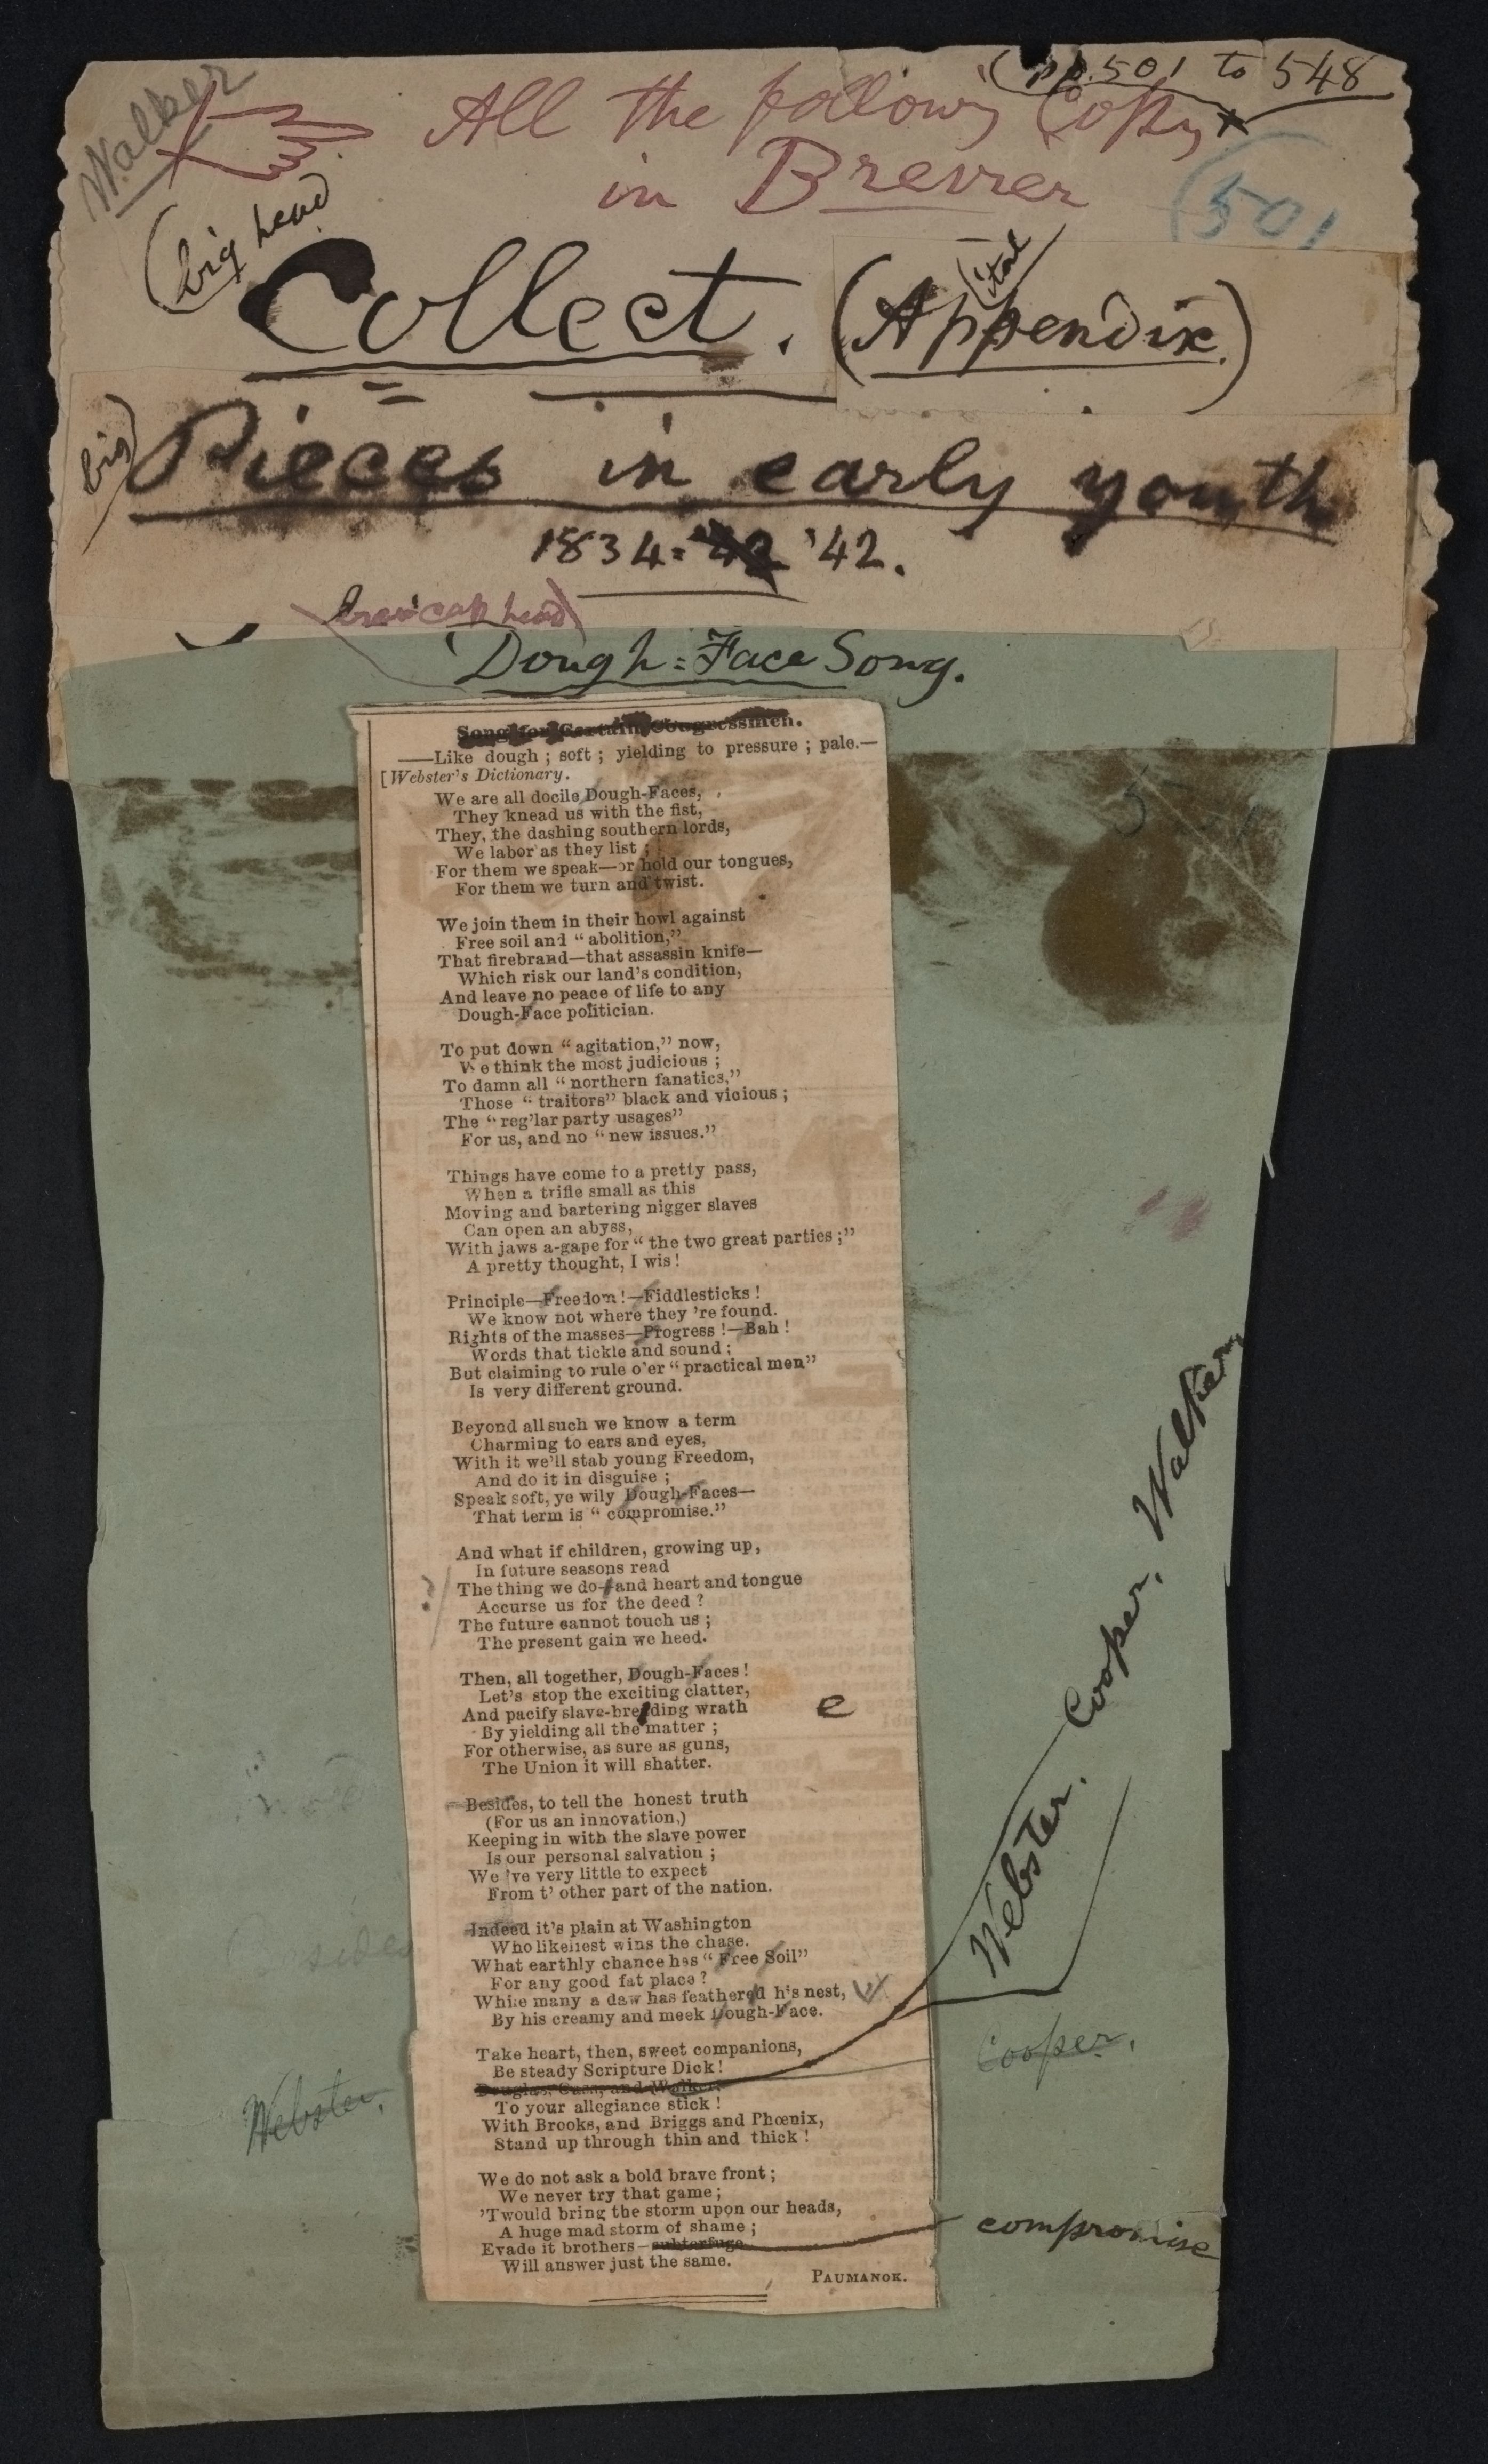 Walker
(pp. 501 to 548
All the following Copy
in Brevier
501
(big head)
Collect. (Appendix)
(ital
big)
Pieces in early youth
1834-'42.
cap head)
Dough-Face Song.
Song for Certain Congressmen.
——Like dough ; soft ; yielding to pressure ; pale.—
[Webster's Dictionary.
We are all docile Dough-Faces,
They knead us with the fist,
They, the dashing southern lords,
We labor as they list ;
For them we speak—or hold our tongues,
For them we turn and twist.
We join them in their howl against
Free soil and “ abolition,”
That firebrand—that assassin knife—
Which risk our land's condition,
And leave no peace of life to any
Dough-Face politician.
To put down “ agitation,” now,
We think the most judicious ;
To damn all “ northern fanatics,”
Those “ traitors” black and vicious ;
The “ reg'lar party usages”
For us, and no “ new issues.”
Things have come to a pretty pass,
When a trifle small as this
Moving and bartering nigger slaves
Can open an abyss,
With jaws a-gape for “ the two great parties ;”
A pretty thought, I wis !
Principle—Freedom !—Fiddlesticks !
We know not where they 're found.
Rights of the masses—Progress !—Bah !
Words that tickle and sound ;
But claiming to rule o'er “ practical men”
Is very different ground.
Beyond all such we know a term
Charming to ears and eyes,
With it we'll stab young Freedom,
And do it in disguise ;
Speak soft, ye wily Dough-Faces—
That term is “ compromise.”
And what if children, growing up,
In future seasons read
The thing we do—and heart and tongue
Accurse us for the deed ?
The future cannot touch us ;
The present gain we heed.
Then, all together, Dough-Faces !
Let's stop the exciting clatter,
And pacify slave-breeding wrath
e
By yielding all the matter ;
For otherwise, as sure as guns,
The Union it will shatter.
Besides, to tell the honest truth
(For us an innovation,)
Keeping in with the slave power
Is our personal salvation ;
We 've very little to expect
From t' other part of the nation.
Besides
Indeed it's plain at Washington
Who likeliest wins the chase.
What earthly chance has “ Free Soil”
For any good fat place ?
While many a daw has feathered his nest,
By his creamy and meek Dough-Face.
Take heart, then, sweet companions,
Be steady Scripture Dick !
Douglas, Cass, and Walker,
Webster, Cooper, Walker,
Cooper.
Webster,
To your allegiance stick !
With Brooks, and Briggs and Phœnix,
Stand up through thin and thick !
We do not ask a bold brave front ;
We never try that game ;
'Twould bring the storm upon our heads,
A huge mad storm of shame ;
Evade it brothers—subterfuge
compromise
Will answer just the same.
PAUMANOK.